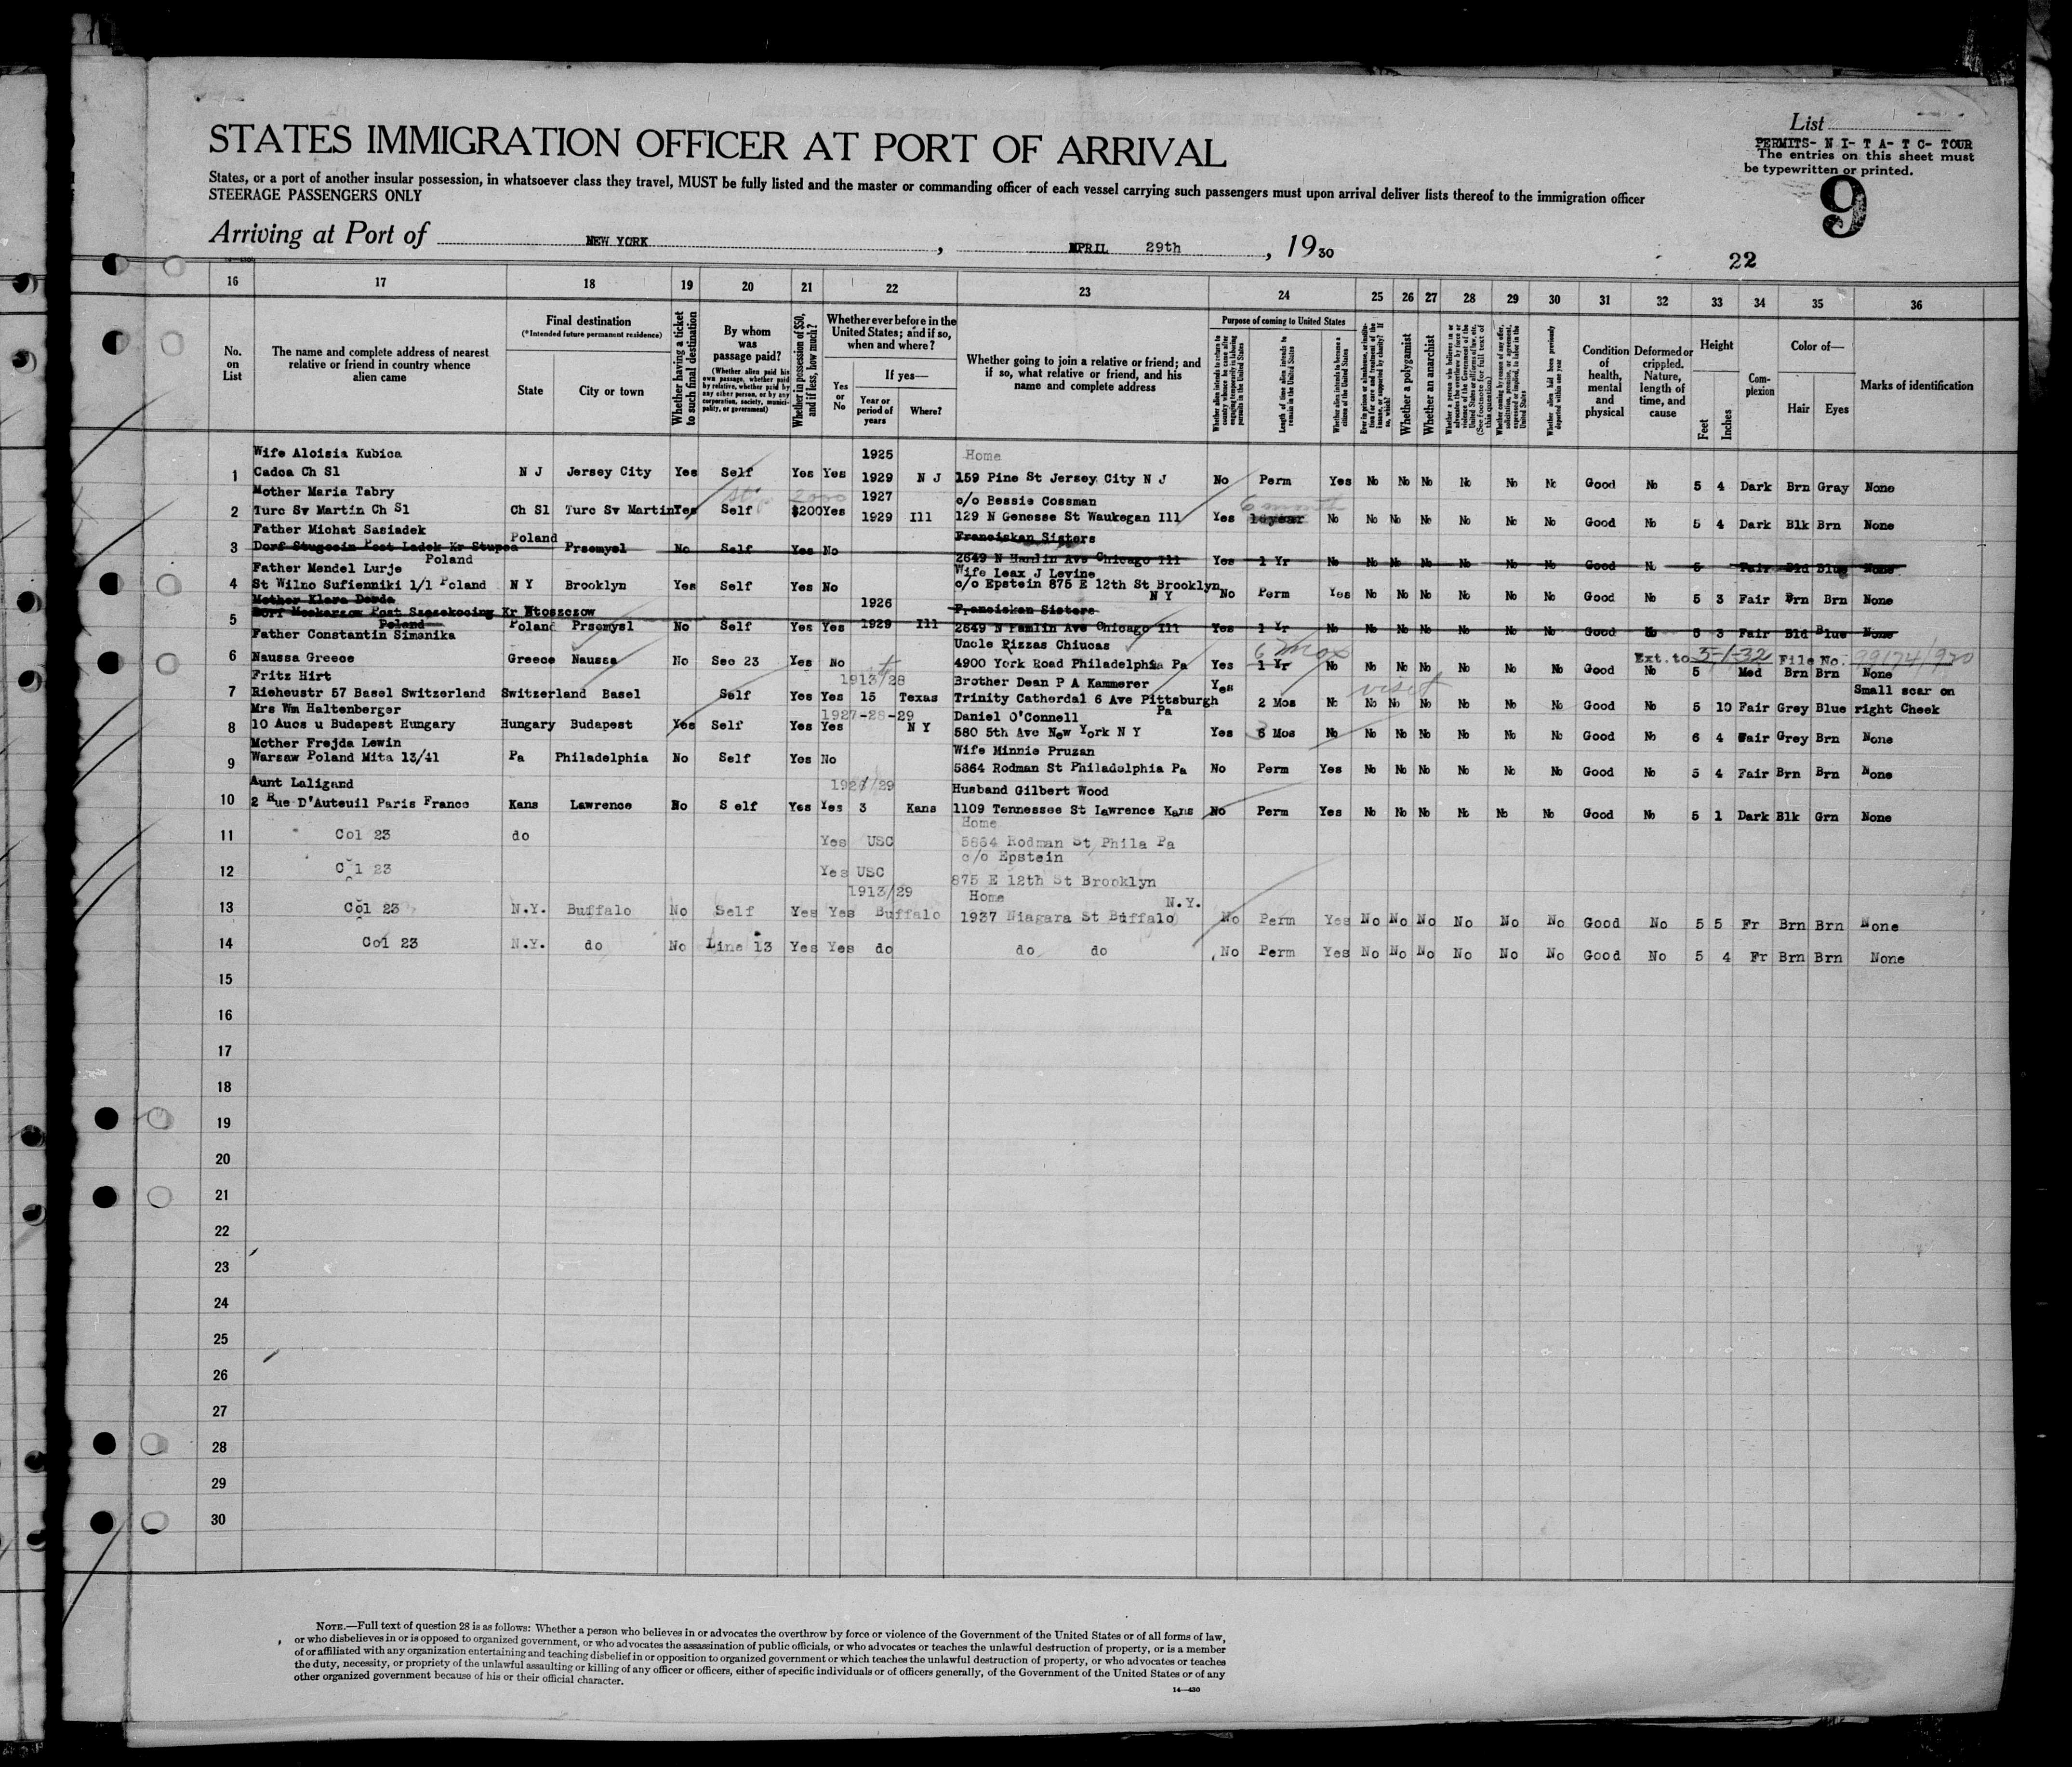 STATES IMMIGRATION OFFICER AT PORT OF ARRIVAL
List
PERMITS- N I- T A- T C- TOUR
The entries on this sheet must
be typewritten or printed.
9
States, or a port of another insular possession, in whatsoever class they travel, MUST be fully listed and the master or commanding officer of each vessel carrying such passengers must upon arrival deliver lists thereof to the immigration officer
STEERAGE PASSENGERS ONLY
Arriving at Port of NEW YORK, APRIL 29th, 1930
22
16 17 18 19 20 21 22 23 24 25 26 27 28 29 30 31 32 33 34 35 36
No. on List
The name and complete address of nearest relative or friend in country whence alien came
Final destination
(*Intended future permanent residence)
State
City or town
Whether having a ticket to such final destination
By whom was passage paid?
(Whether alien paid his own passage, whether paid by relative, whether paid by any other person, or by any corporation, society, municipality, or government)
Whether in possession of $50, and if less, how much?
Whether ever before in the United States; and if so, when and where?
Yes or No
If yes—
Year or period of years
Where?
Whether going to join a relative or friend; and if so, what relative or friend, and his name and complete address
Purpose of coming to United States
Length of time alien intends to remain in the United States
Whether alien intends to become a citizen of the United States
Whether a polygamist
Whether an anarchist
Condition of health, mental and physical
Deformed or crippled. Nature, length of time, and cause
Height
Feet
Inches
Complexion
Color of—
Hair
Eyes
Marks of identification
Wife Aloisia Kubica 1925 Home
1 Cadca Ch Sl N J Jersey City Yes Self Yes Yes 1929 N J 159 Pine St Jersey City N J No Perm Yes No No No No No No Good No 5 4 Dark Brn Gray None
Mother Maria Tabry 1927 c/o Bessie Cossman
2 Turc Sv Martin Ch Sl Ch Sl Turc Sv Martin Yes Self $200 Yes 1929 Ill 129 N Genesse St Waukegan Ill Yes No No No No No No No Good No 5 4 Dark Blk Brn None
Father Michat Sasiadek Poland Franciskan Sisters
3 Przemysl No Self Yes No 2649 N Hamlin Ave Chicago Ill Yes 1 Yr No No No No No No No Good No 5 Fair Bld Blue None
Poland
Father Mendel Lurje Wife Leax J Levine
4 St Wilno Sufienniki 1/1 Poland N Y Brooklyn Yes Self Yes No c/o Epstein 875 E 12th St Brooklyn N Y No Perm Yes No No No No No No Good No 5 3 Fair Brn Brn None
Mother Klara Derda 1926 Franciskan Sisters
5 Poland Poland Przemysl No Self Yes Yes 1929 Ill 2649 N Hamlin Ave Chicago Ill Yes 1 Yr No No No No No No No Good No 5 3 Fair Bld Blue None
Father Constantin Simanika Uncle Rizzas Chiucas 6 mos Ext. to 3-1-32 File No. 99174/920
6 Naussa Greece Greece Naussa No Sec 23 Yes No 4900 York Road Philadelphia Pa Yes 1 Yr No No No No No No No Good No 5 Med Brn Brn None
Fritz Hirt 1913/28 Brother Dean P A Kammerer Yes visit Small scar on
7 Rieheustr 57 Basel Switzerland Switzerland Basel Self Yes Yes 15 Texas Trinity Catherdal 6 Ave Pittsburgh Pa 2 Mos No No No No No No No Good No 5 10 Fair Grey Blue right Cheek
Mrs Wm Haltenberger 1927-28-29 Daniel O'Connell
8 10 Aucs u Budapest Hungary Hungary Budapest Yes Self Yes Yes N Y 580 5th Ave New York N Y Yes 6 Mos No No No No No No No Good No 6 4 Fair Grey Brn None
Mother Frejda Lewin Wife Minnie Pruzan
9 Warsaw Poland Mita 13/41 Pa Philadelphia No Self Yes No 5864 Rodman St Philadelphia Pa No Perm Yes No No No No No No Good No 5 4 Fair Brn Brn None
Aunt Laligand Husband Gilbert Wood
10 2 Rue D'Auteuil Paris France Kans Lawrence No Self Yes Yes 3 Kans 1109 Tennessee St Lawrence Kans No Perm Yes No No No No No No Good No 5 1 Dark Blk Grn None
Home
11 Col 23 do Yes USC 5864 Rodman St Phila Pa
c/o Epstein
12 Col 23 Yes USC 875 E 12th St Brooklyn N.Y.
1913/29 Home
13 Col 23 N.Y. Buffalo No Self Yes Yes Buffalo 1937 Niagara St Buffalo No Perm Yes No No No No No No Good No 5 5 Fr Brn Brn None
14 Col 23 N.Y. do No Line 13 Yes Yes do do do No Perm Yes No No No No No No Good No 5 4 Fr Brn Brn None
15
16
17
18
19
20
21
22
23
24
25
26
27
28
29
30
NOTE.—Full text of question 28 is as follows: Whether a person who believes in or advocates the overthrow by force or violence of the Government of the United States or of all forms of law,
or who disbelieves in or is opposed to organized government, or who advocates the assassination of public officials, or who advocates or teaches the unlawful destruction of property, or is a member
of or affiliated with any organization entertaining and teaching disbelief in or opposition to organized government or which teaches the unlawful destruction of property, or who advocates or teaches
the duty, necessity, or propriety of the unlawful assaulting or killing of any officer or officers, either of specific individuals or of officers generally, of the Government of the United States or of any
other organized government because of his or their official character.
14—430